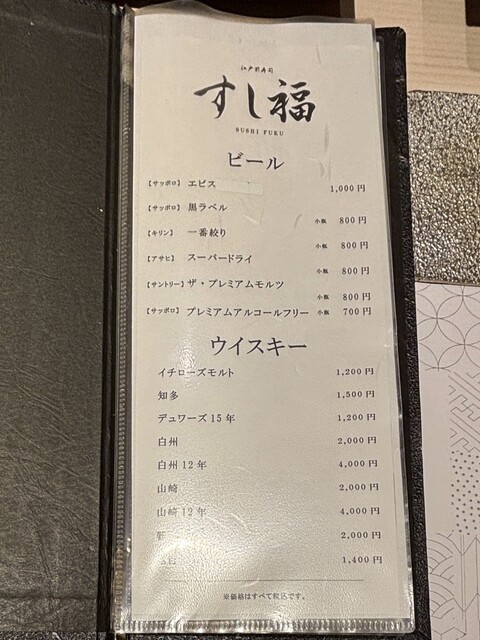 江戸前寿司
すし福
SUSHI FUKU
ビール
【サッポロ】 ヱビス 1,000円
【サッポロ】 黒ラベル 小瓶 800円
【キリン】 一番絞り 小瓶 800円
【アサヒ】 スーパードライ 小瓶 800円
【サントリー】 ザ・プレミアムモルツ 小瓶 800円
【サッポロ】 プレミアムアルコールフリー 小瓶 700円
ウイスキー
イチローズモルト 1,200円
知多 1,500円
デュワーズ 15年 1,200円
白州 2,000円
白州 12年 4,000円
山崎 2,000円
山崎 12年 4,000円
2,000円
1,400円
※価格はすべて税込です。